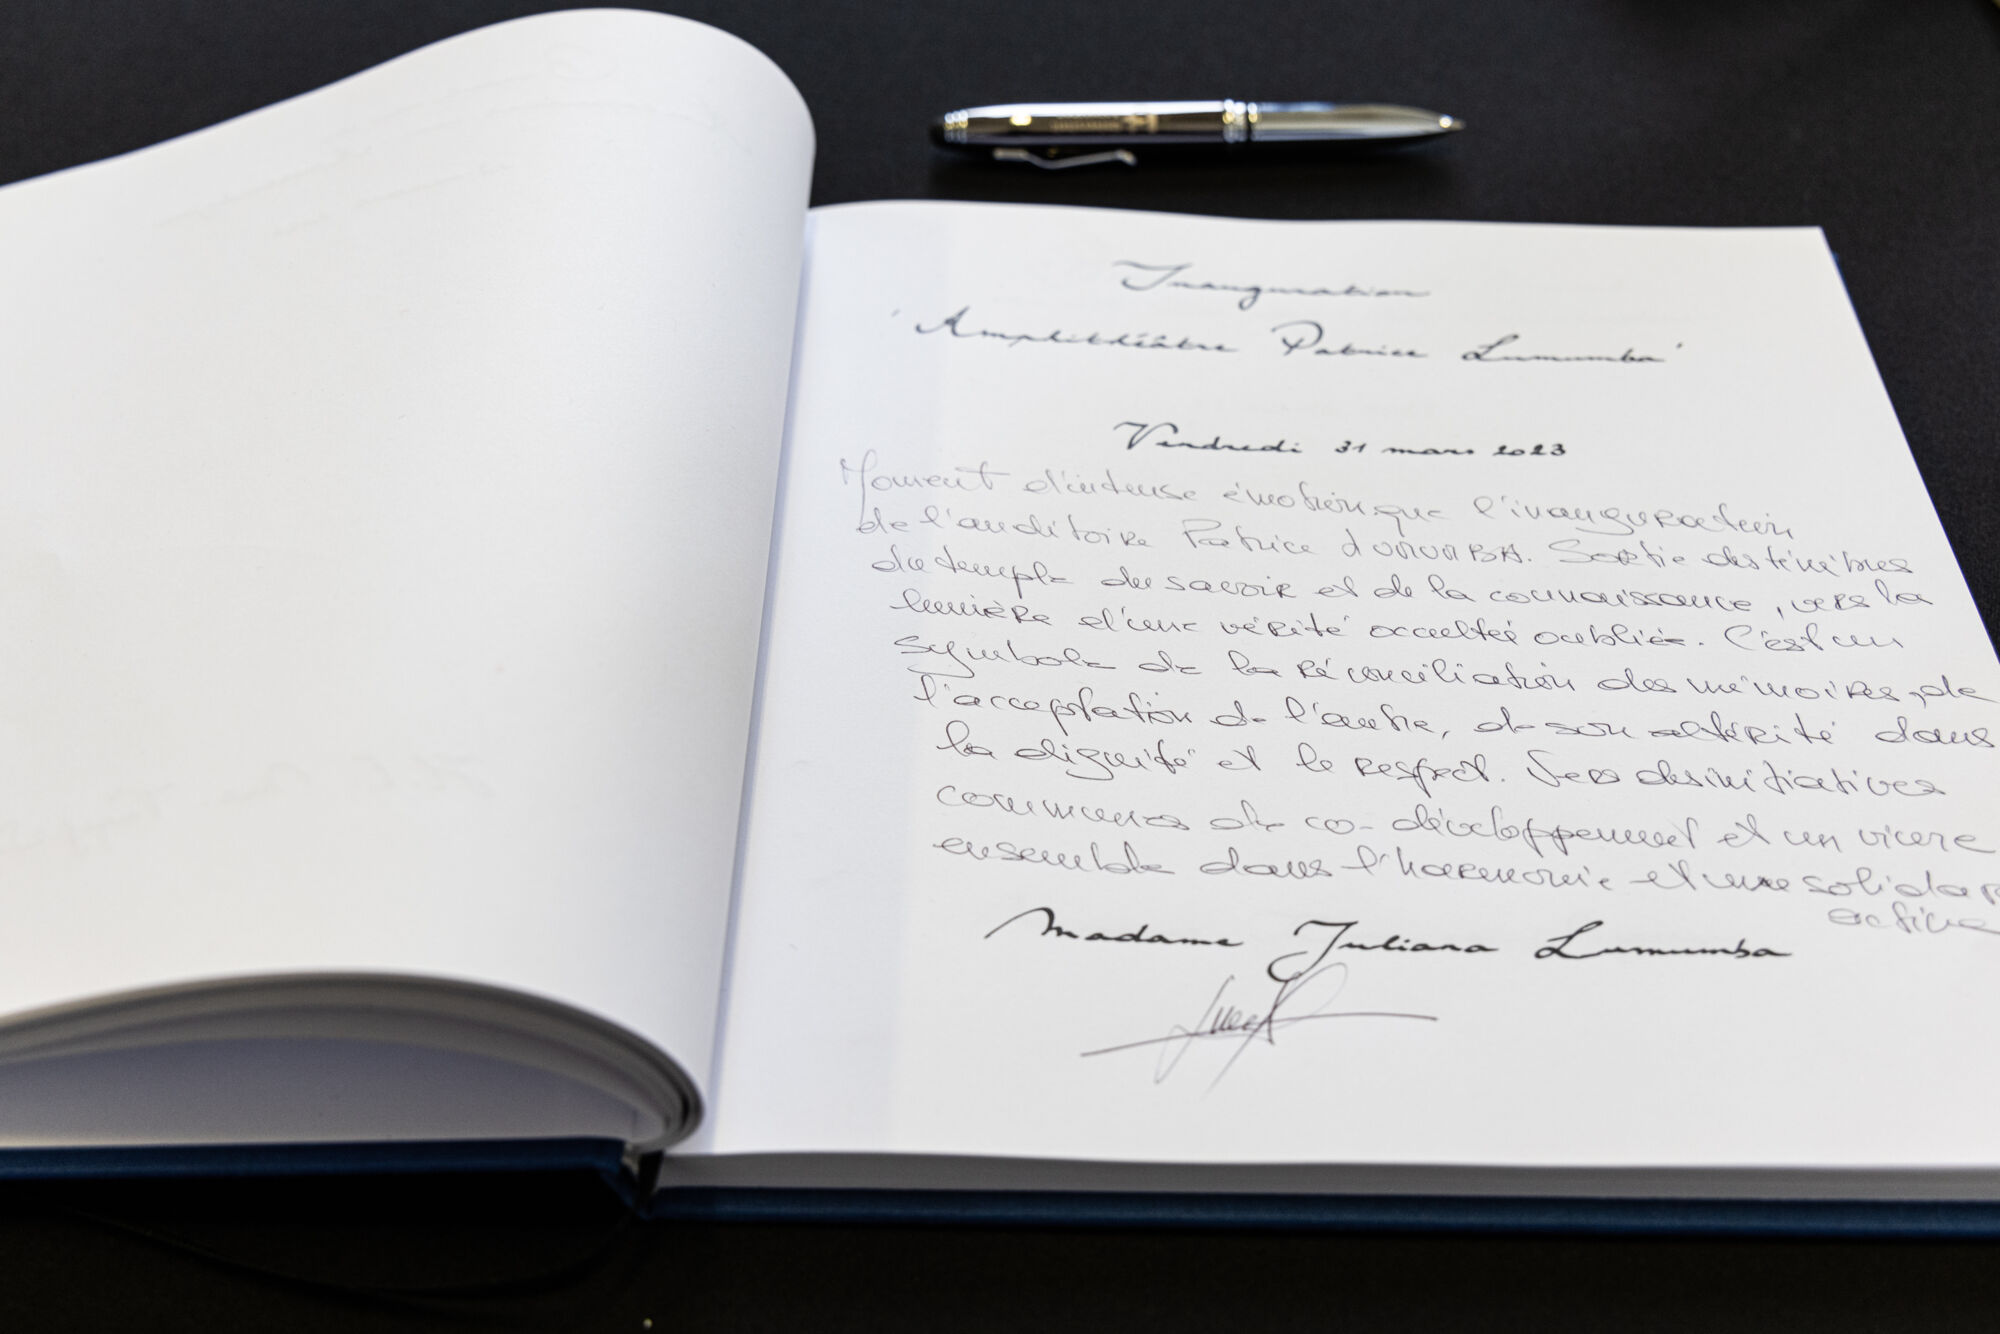 Inauguration
'Amphithéâtre Patrice Lumumba'
Vendredi 31 mars 2023
Moment d'intense émotion que l'inauguration
de l'auditoire Patrice LUMUMBA. Sortie des ténèbres
du temple du savoir et de la connaissance, vers la
lumière d'une vérité occultée oubliée. C'est un
symbole de la réconciliation des mémoires, de
l'acceptation de l'autre, de son altérité dans
la dignité et le respect. Vers des initiatives
communes de co-développement et un vivre
ensemble dans l'harmonie et une solidar
active
Madame Juliana Lumumba